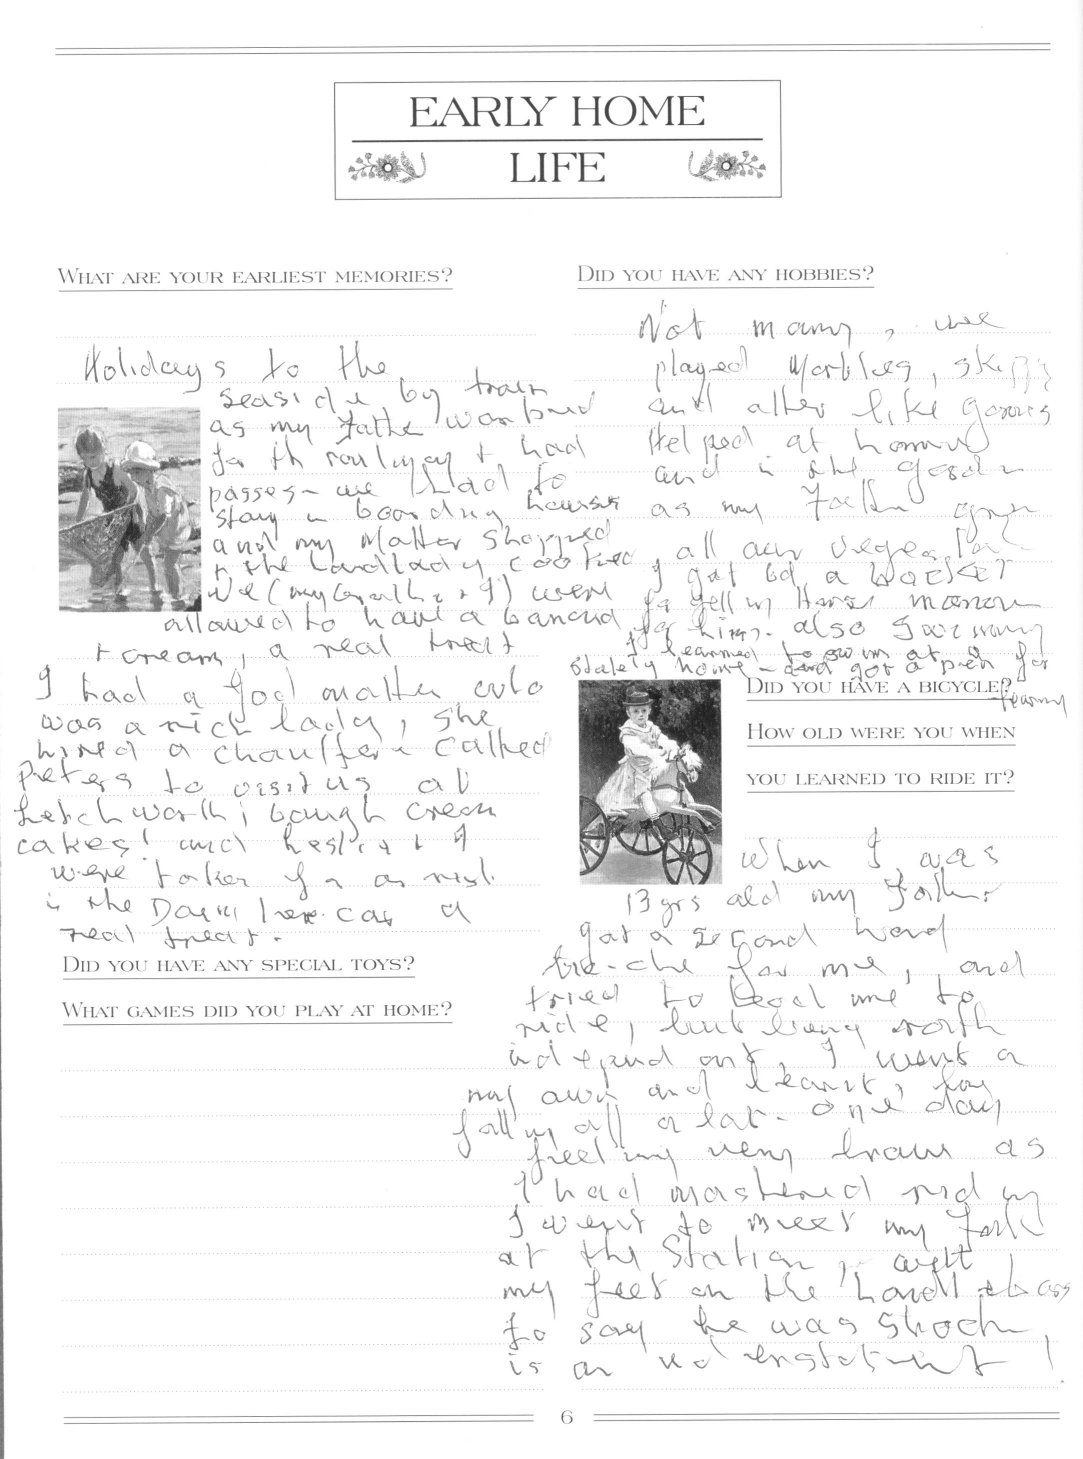 EARLY HOME
LIFE
WHAT ARE YOUR EARLIEST MEMORIES?
Holidays to the
seaside by train
as my Father worked
for th railway + had
passes - we had to
stay in boarding houses
and my Mother shopped
+ the Landlady cooked
We (my brother + I) were
allowed to have a banana
+ cream, a real treat
I had a God mother who
was a rich lady, she
hired a chauffer called
Peters to visit us at
Letchworth; bough cream
cakes! and I
were taken for a
in the car a
real treat.
DID YOU HAVE ANY SPECIAL TOYS?
WHAT GAMES DID YOU PLAY AT HOME?
DID YOU HAVE ANY HOBBIES?
Not many, we
played Marbles, skippy
and other like games
Helped at home
and in the garden
as my Father grew
all our veges, Dad
I got 6d a bucket
for Horse manure
for him. also Swimming
I learned to swim at a
stately home - and got a for
DID YOU HAVE A BICYCLE?
HOW OLD WERE YOU WHEN
YOU LEARNED TO RIDE IT?
When I was
13 yrs old my Father
got a second hand
for me, and
tried to me to
ride, but being
I went on
my own and learnt, by
falling off a lot - one day
feeling very brave as
I had mastered riding
I went to meet my
at the Station with
my feet on the
to say he was shock
is an understatment!
6